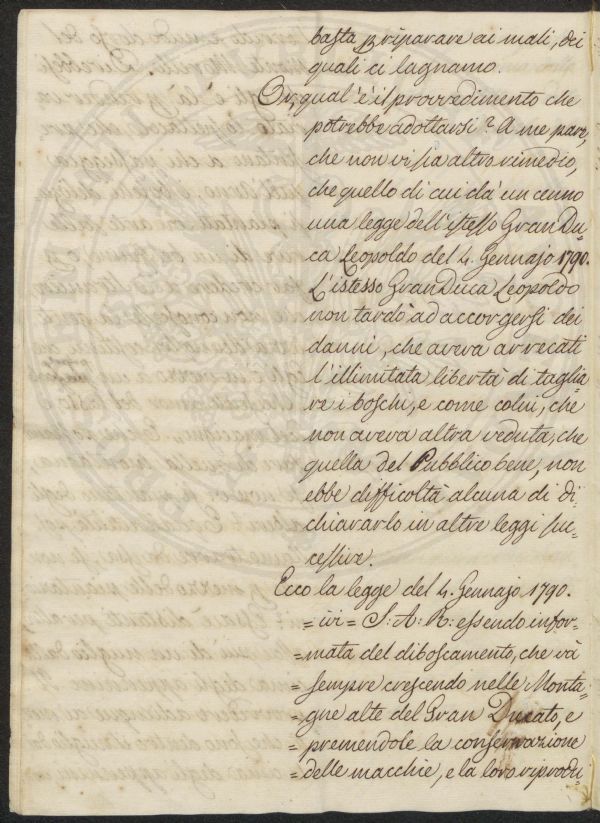 basta p riparare ai mali, dei
quali ci lagnamo.
Or, qual'è il provvedimento che
potrebbe adottarsi? A me pare,
che non vi sia altro rimedio,
che quello di cui dà un cenno
una legge dell'istesso Gran Du-
ca Leopoldo del 4. Gennajo 1790.
L'istesso Gran Duca Leopoldo
non tardò ad accorgersi dei
danni, che aveva arrecati
l'illimitata libertà di taglia-
re i boschi, e come colui, che
non aveva altra veduta, che
quella del Pubblico bene, non
ebbe difficoltà alcuna di di-
chiararlo in altre leggi suc-
cessive.
Ecco la legge del 4. Gennajo 1790.
= ivi = S: A: R: essendo infor-
= mata del diboscamento, che và
= sempre crescendo nelle Monta-
= gne alte del Gran Ducato, e
= premendole la conservazione
= delle macchie, e la loro riprodu-